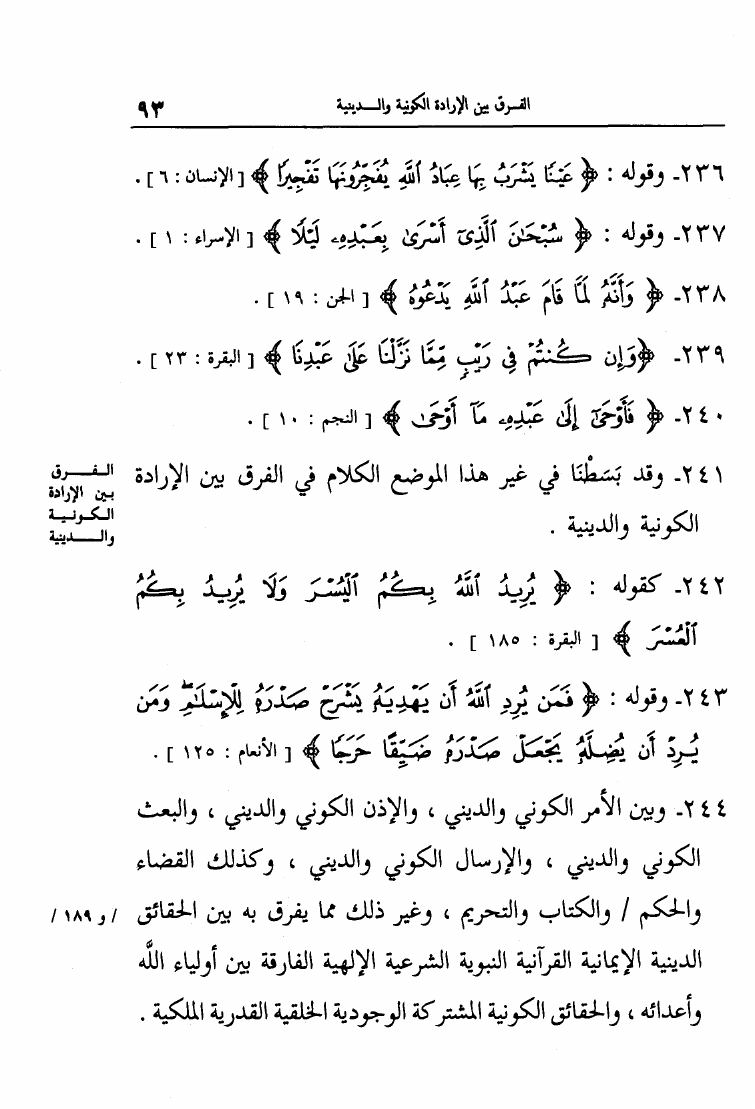 الفرق بين الإرادة الكونية والدينية
٩٣
٢٣٦ـ وقوله : ﴿ عَيْنًا يَشْرَبُ بِهَا عِبَادُ ٱللَّهِ يُفَجِّرُونَهَا تَفْجِيرًا ﴾ [ الإنسان : ٦ ] .
٢٣٧ـ وقوله : ﴿ سُبْحَٰنَ ٱلَّذِىٓ أَسْرَىٰ بِعَبْدِهِۦ لَيْلًا ﴾ [ الإسراء : ١ ] .
٢٣٨ـ ﴿ وَأَنَّهُۥ لَمَّا قَامَ عَبْدُ ٱللَّهِ يَدْعُوهُ ﴾ [ الجن : ١٩ ] .
٢٣٩ـ ﴿وَإِن كُنتُمْ فِى رَيْبٍ مِّمَّا نَزَّلْنَا عَلَىٰ عَبْدِنَا ﴾ [ البقرة : ٢٣ ] .
٢٤٠ـ ﴿ فَأَوْحَىٰٓ إِلَىٰ عَبْدِهِۦ مَآ أَوْحَىٰ ﴾ [ النجم : ١٠ ] .
٢٤١ـ وقد بَسَطْنَا في غير هذا الموضع الكلام في الفرق بين الإرادة
الكونية والدينية .
الفرق
بين الإرادة
الكونية
والدينية
٢٤٢ـ كقوله : ﴿ يُرِيدُ ٱللَّهُ بِكُمُ ٱلْيُسْرَ وَلَا يُرِيدُ بِكُمُ
ٱلْعُسْرَ ﴾ [ البقرة : ١٨٥ ] .
٢٤٣ـ وقوله : ﴿ فَمَن يُرِدِ ٱللَّهُ أَن يَهْدِيَهُۥ يَشْرَحْ صَدْرَهُۥ لِلْإِسْلَٰمِۖ وَمَن
يُرِدْ أَن يُضِلَّهُۥ يَجْعَلْ صَدْرَهُۥ ضَيِّقًا حَرَجًا ﴾ [ الأنعام : ١٢٥ ] .
٢٤٤ـ وبين الأمر الكوني والديني ، والإذن الكوني والديني ، والبعث
الكوني والديني ، والإرسال الكوني والديني ، وكذلك القضاء
والحكم / والكتاب والتحريم ، وغير ذلك مما يفرق به بين الحقائق
/ و ١٨٩ /
الدينية الإيمانية القرآنية النبوية الشرعية الإلهية الفارقة بين أولياء اللَّه
وأعدائه ، والحقائق الكونية المشتركة الوجودية الخلقية القدرية الملكية .